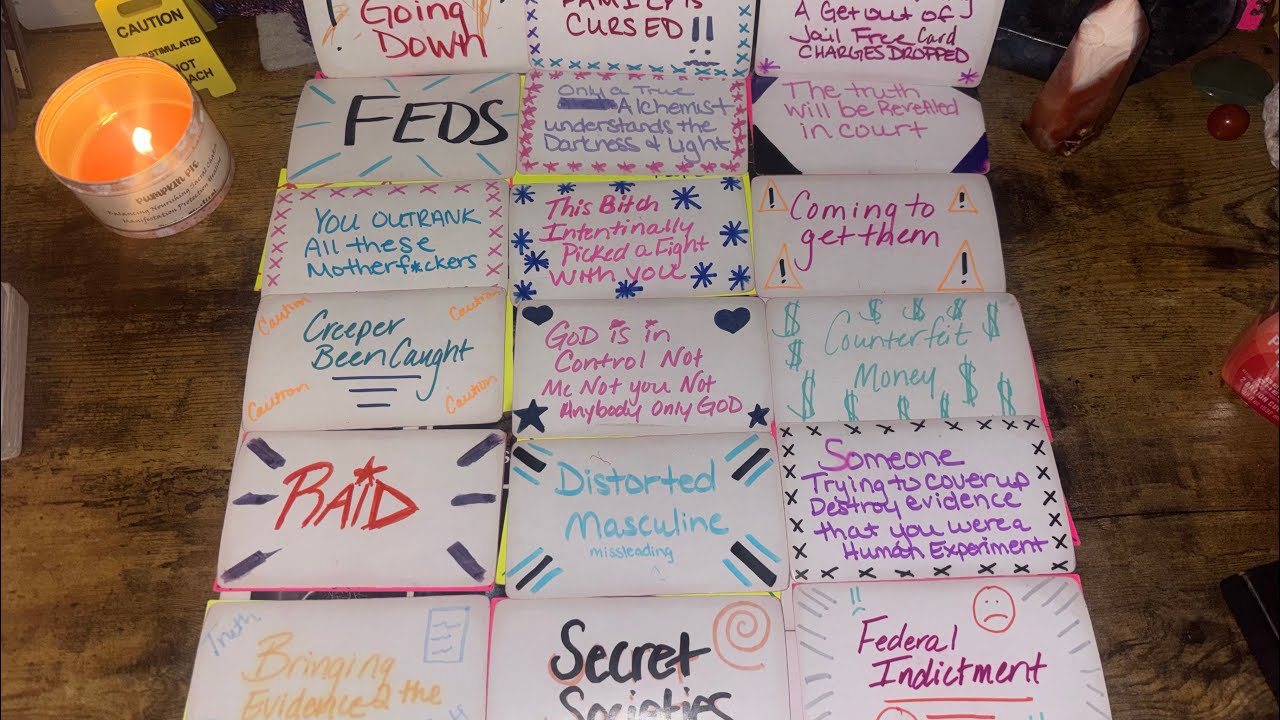 CAUTION
OVERSTIMULATED
Going
Down
FAMILY IS
CURSED !!
A Get out of
Jail Free Card
CHARGES DROPPED
FEDS
Only a True
Alchemist
understands the
Darkness & Light
The truth
will be Revealed
in court
PUMPKIN PIE
YOU OUTRANK
All these
Motherf*ckers
This Bitch
Intentinally
Picked a Fight
With you
Coming to
get them
Caution
Caution
Creeper
Been Caught
Caution
Caution
GOD is in
Control Not
Me Not you Not
Anybody Only GOD
Counterfeit
Money
RAID
Distorted
Masculine
missleading
Someone
Trying to coverup
Destroy evidence
that you were a
Human Experiment
Truth
Bringing
Evidence 2 the
Secret
Societies
Federal
Indictment